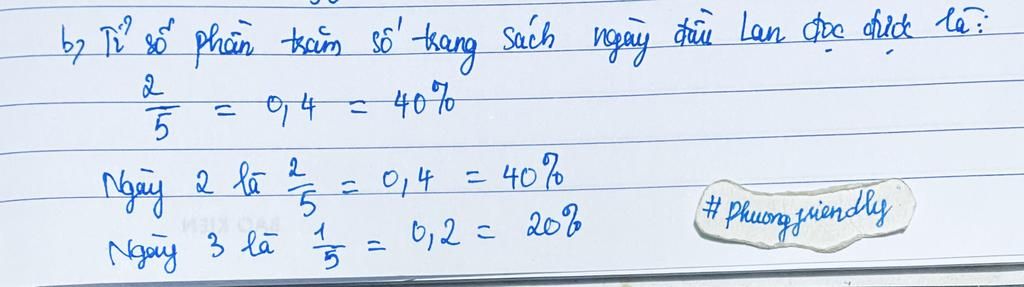 b, Tỉ số phần trăm số trang sách ngày đầu Lan đọc được là:
2/5 = 0,4 = 40%
Ngày 2 là 2/5 = 0,4 = 40%
Ngày 3 là 1/5 = 0,2 = 20%
#Phuongfriendly